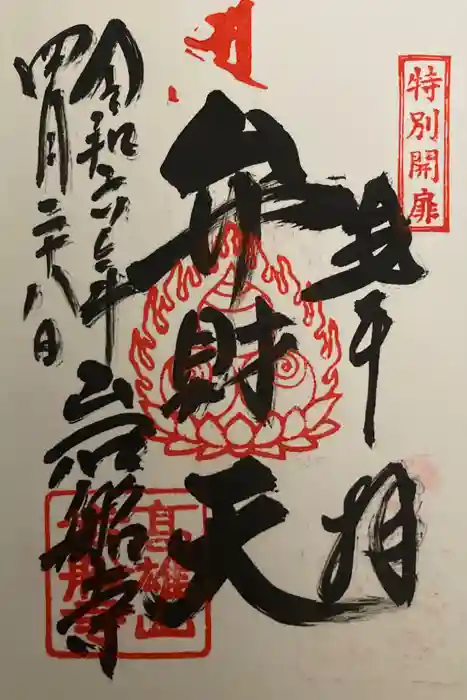 特別開扉
奉拝
弁財天
令和六年
四月二十八日
岩船寺
高雄山
岩船寺